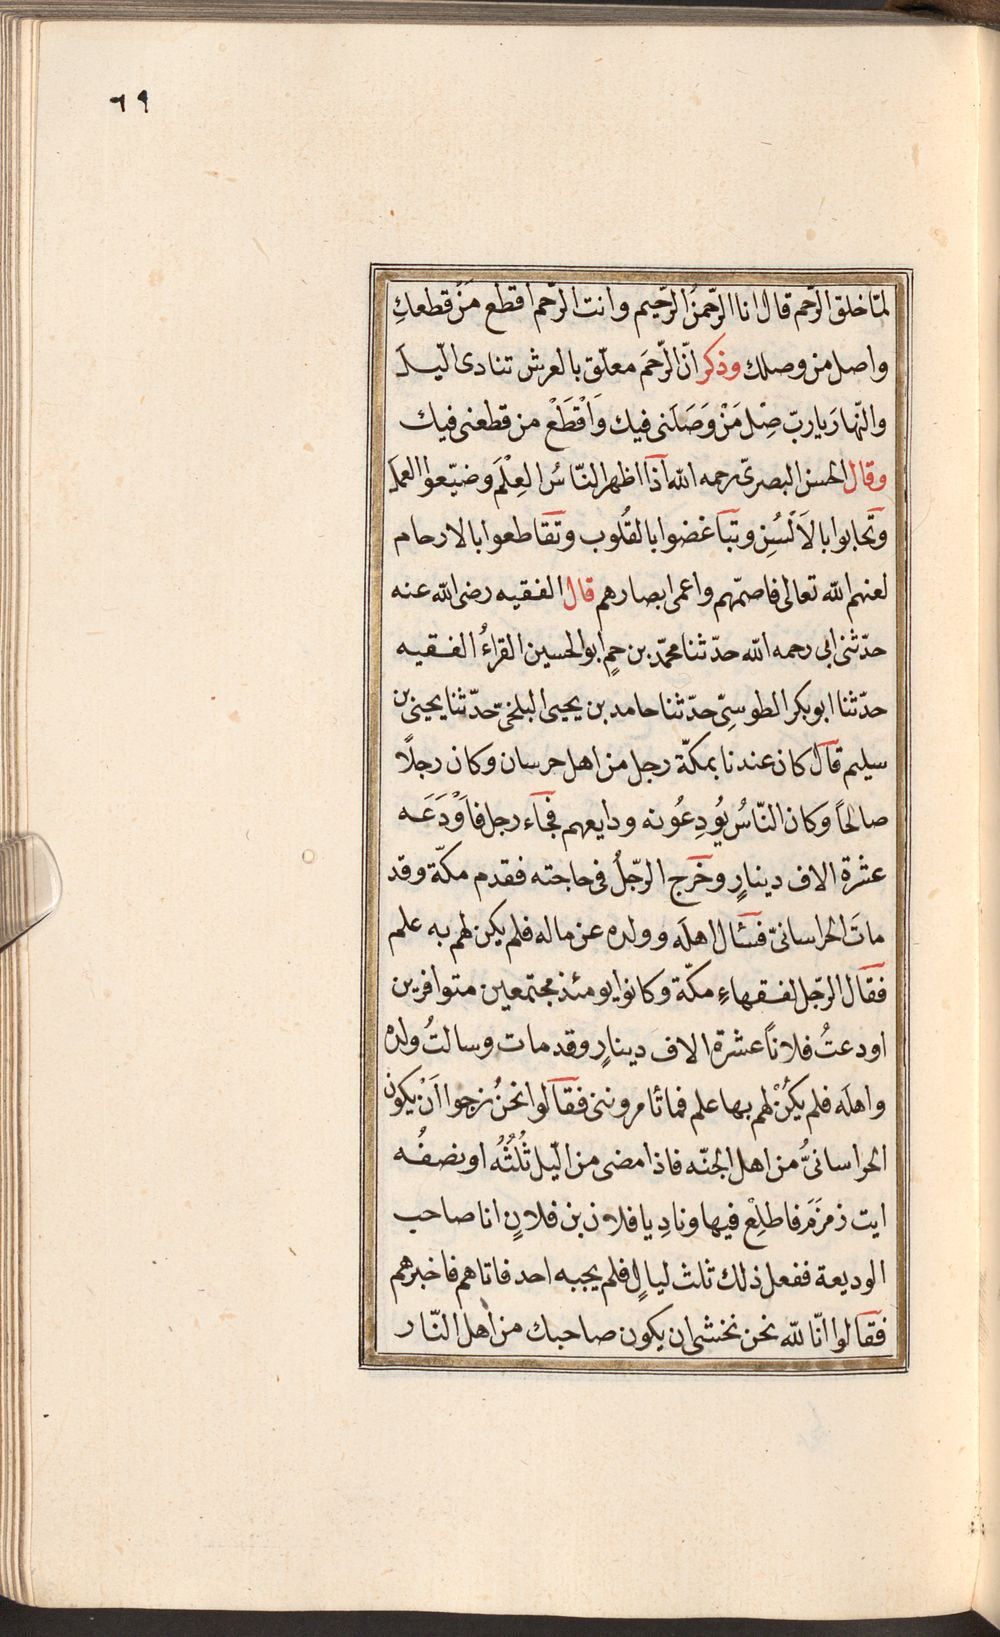 ٦٩
لمّا خلق الرّحم قال انا الرّحمنُ الرّحيم وانت الرّحم اقطع مَنْ قطعكِ
واصل من وصلك وذكر انّ الرّحمَ معلّق بالعرش تنادى الّيلَ
والنّهارَ يا ربّ صِلْ مَنْ وَصَلَنى فيك وَاقْطَعْ من قطعنى فيك
وقال الحسن البصرىّ رحمه اللّه اذا اظهر النّاسُ العِلْمَ وضيّعوا العمل
وتحابوا بالاَلْسُنِ وتباغضوا بالقُلوب وتقاطعوا بالارحام
لعنهم اللّه تعالى فاصمّهم واعمى ابصارهم قال الفقيه رضى اللّه عنه
حدّثنى ابى رحمه اللّه حدّثنا محمّد بن حمٍ ابو الحسين القراءُ الفقيه
حدّثنا ابو بكر الطوسىّ حدّثنا حامد بن يحيى البلخىّ حدّثنا يحيى بن
سليم قال كان عندنا بمكّة رجل من اهل خرسان وكان رجلًا
صالحًا وكان النّاسُ يُودِعُونه ودايعهم فجاء رجل فاَوْدَعَه
عشرة الاف دينارٍ وخرج الرّجلُ فى حاجته فقدم مكّة وقد
ماتَ الخراسانىّ فسئال اهلَه وولده عن ماله فلم يكن لهم به علم
فقال الرّجل لفقهاءِ مكّة وكانوا يومئذ مجتمعين متوافرين
اودعتُ فلاناً عشرة الاف دينارٍ وقد مات وسالتُ ولده
واهلَه فلم يكُنْ لهم بها علم فما تأمروننى فقالوا نحنُ نرجوا اَنْ يكون
الخراسانىُّ من اهل الجنّه فاذا مضى من الّيل ثُلُثُهُ او نصفُه
ايت زمزَمَ فاطلِعْ فيها ونادِ يا فلان بن فلانٍ انا صاحب
الوديعة ففعل ذلك ثلث ليالٍ فلم يجبه احد فاتاهم فاخبرهم
فقالوا انّا للّه نحن نخشى ان يكون صاحبك من اهل النّار